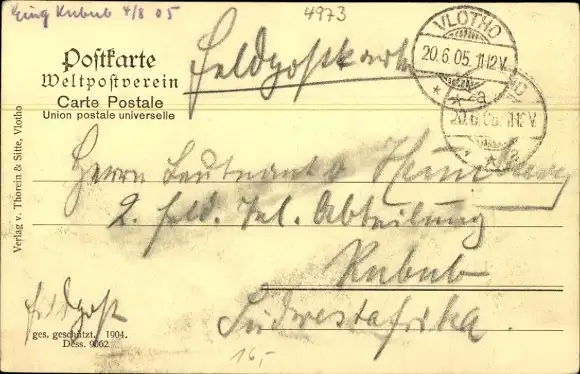 Eing Kubub 4/8 05
4973
Postkarte
Weltpostverein
Carte Postale
Union postale universelle
Feldpostkarte
VLOTHO
20.6.05. 11-12V.
* a
20.6.05. 11-12V.
Verlag v. Thorein & Sitte, Vlotho
Herrn Leutnant v.
2. Feld. Tel. Abteilung
Kubub
Südwestafrika
Feldpost
ges. geschützt. 1904.
Dess. 9062
16,-